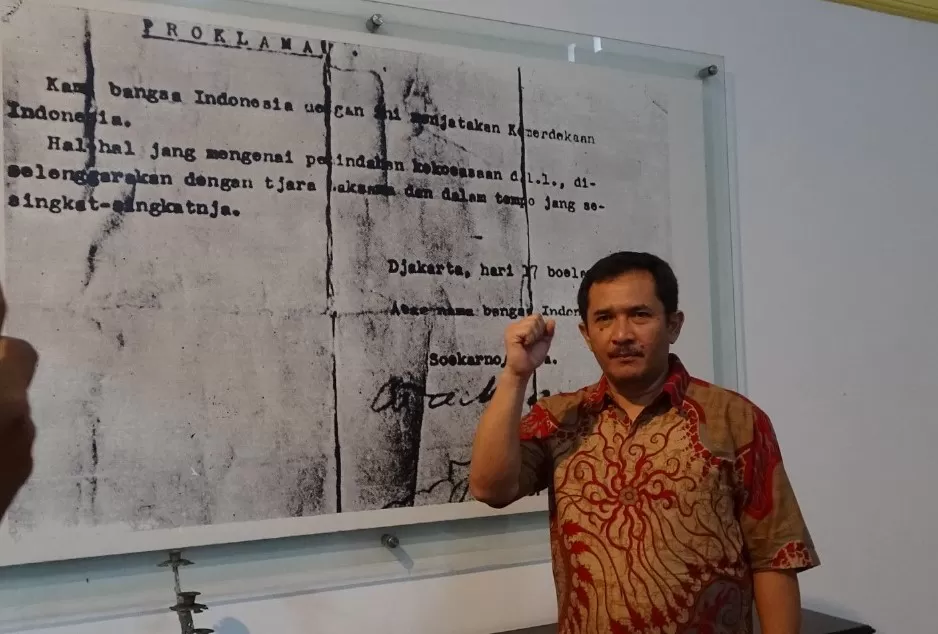 PROKLAMASI.
Kami bangsa Indonesia dengan ini menjatakan Kemerdekaan
Indonesia.
Hal-hal jang mengenai pemindahan kekoeasaan d.l.l., di-
selenggarakan dengan tjara saksama dan dalam tempo jang se-
singkat-singkatnja.
Djakarta, hari 17 boela
Atas nama bangsa Indon
Soekarno/